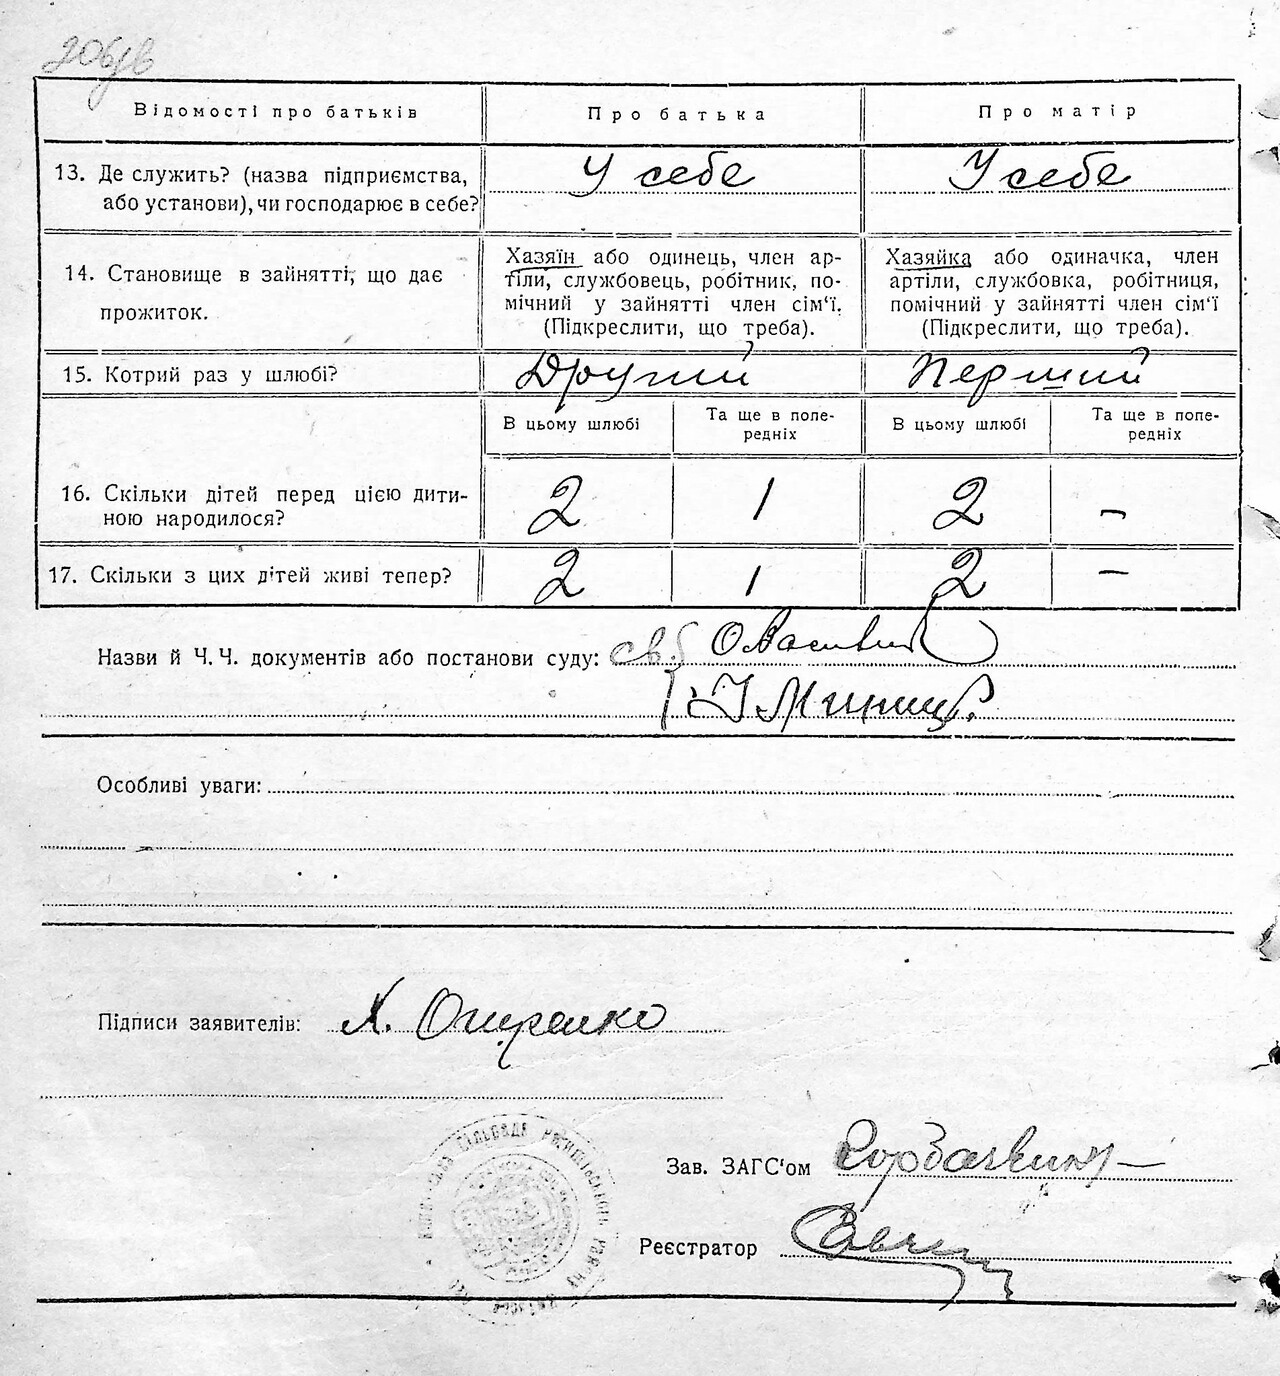 206зв
Відомості про батьків
Про батька
Про матір
13. Де служить? (назва підприємства,
або установи), чи господарює в себе?
У себе
У себе
14. Становище в зайнятті, що дає
прожиток.
Хазяїн або одинець, член ар-
тіли, службовець, робітник, по-
мічний у зайнятті член сім'ї.
(Підкреслити, що треба).
Хазяйка або одиначка, член
артіли, службовка, робітниця,
помічний у зайнятті член сім'ї
(Підкреслити, що треба).
15. Котрий раз у шлюбі?
Другий
Перший
В цьому шлюбі
Та ще в попе-
редніх
В цьому шлюбі
Та ще в попе-
редніх
16. Скільки дітей перед цією дити-
ною народилося?
2
1
2
–
17. Скільки з цих дітей живі тепер?
2
1
2
–
Назви й Ч. Ч. документів або постанови суду:
Особливі уваги:
Підписи заявителів: Х.
Зав. ЗАГС'ом
Реєстратор